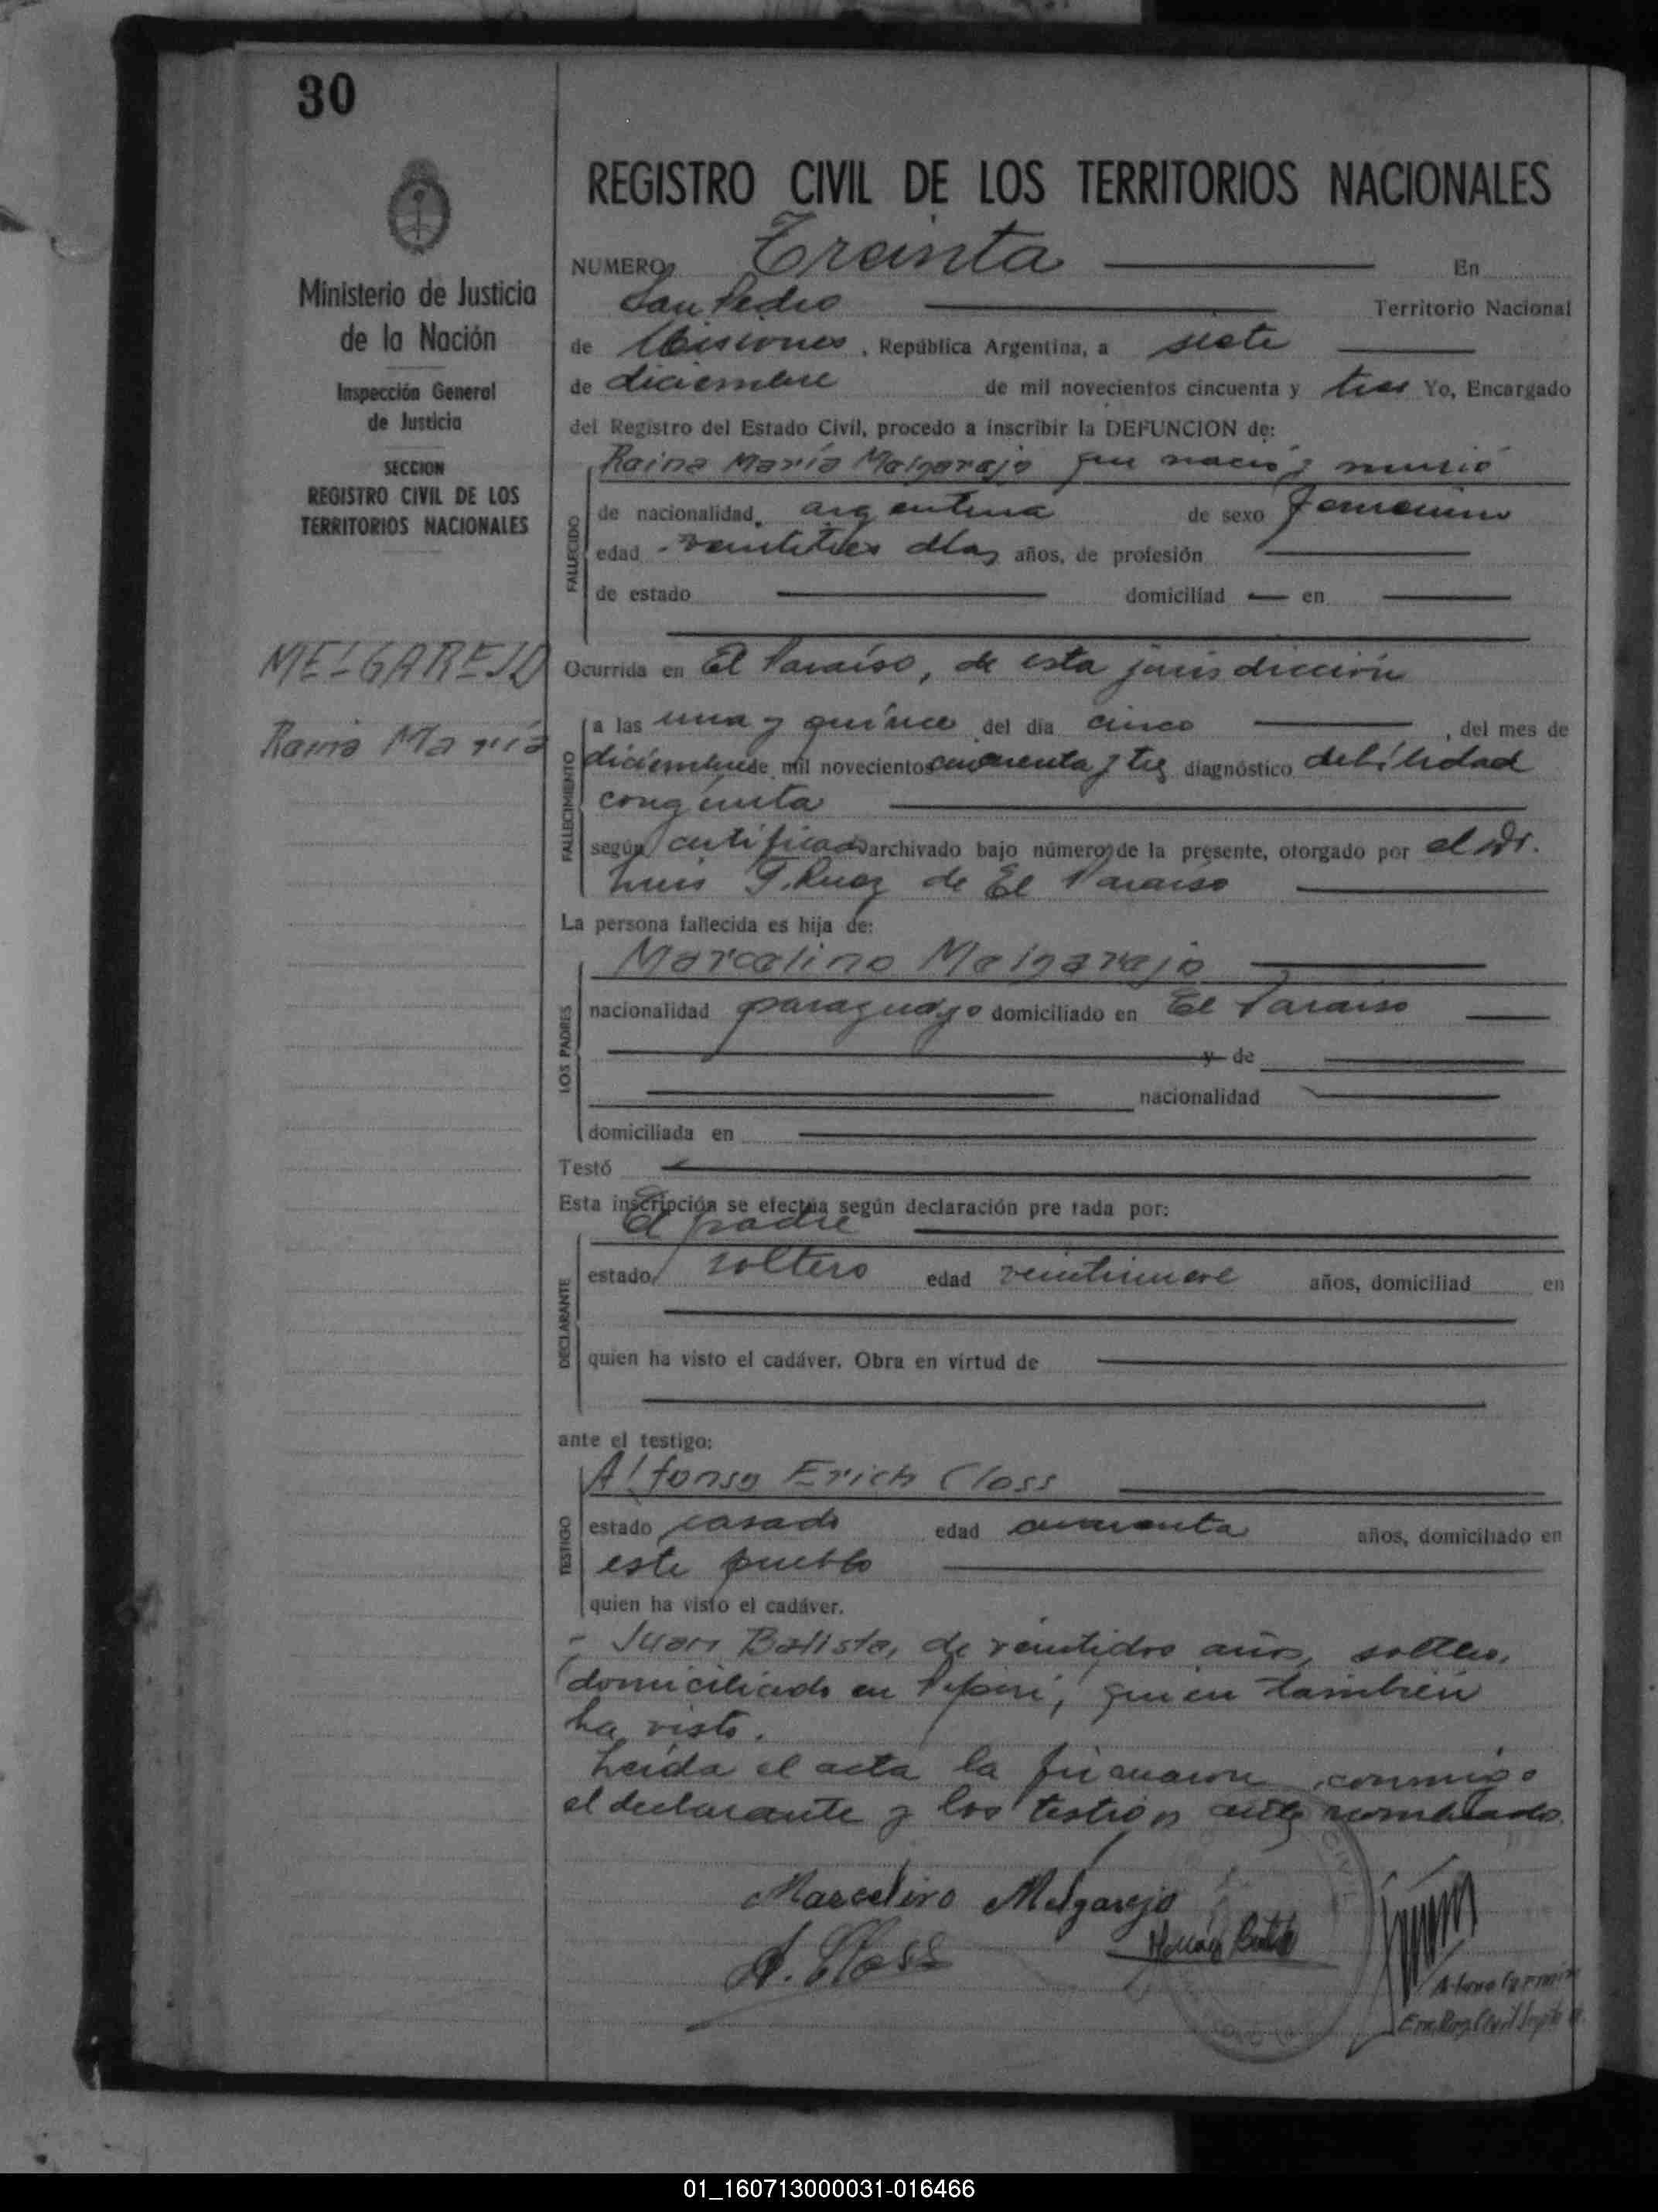 30
Ministerio de Justicia
de la Nación
Inspección General
de Justicia
SECCION
REGISTRO CIVIL DE LOS
TERRITORIOS NACIONALES
MELGAREJO
Raina María
REGISTRO CIVIL DE LOS TERRITORIOS NACIONALES
NUMERO Treinta En
San Pedro Territorio Nacional
de Misiones, República Argentina, a siete
de diciembre de mil novecientos cincuenta y tres Yo, Encargado
del Registro del Estado Civil, procedo a inscribir la DEFUNCION de:
Raina María Melgarejo que nació y murió
FALLECIDO
de nacionalidad argentina de sexo femenino
edad veintitres días años, de profesión
de estado domiciliad en
Ocurrida en El Paraíso, de esta jurisdicción
FALLECIMIENTO
a las una y quince del día cinco, del mes de
diciembre de mil novecientos cincuenta y tres diagnóstico debilidad
congenita
según certificado archivado bajo número de la presente, otorgado por el Dr.
Luis de El Paraiso
La persona fallecida es hija de:
LOS PADRES
Marcelino Melgarejo
nacionalidad paraguayo domiciliado en El Paraiso
y de
nacionalidad
domiciliada en
Testó
Esta inscripción se efectúa según declaración pre tada por:
El padre
DECLARANTE
estado soltero edad veintinueve años, domiciliad en
quien ha visto el cadáver. Obra en virtud de
ante el testigo:
TESTIGO
Alfonso Erich Closs
estado casado edad cuarenta años, domiciliado en
este pueblo
quien ha visto el cadáver.
- Juan Batista, de veintidos años, soltero,
domiciliado en Pepirí, quien también
ha visto.
Leída el acta la firmaron conmigo
el declarante y los testigos antes nombrados.
Marcelino Melgarejo
A. Closs
01_160713000031-016466